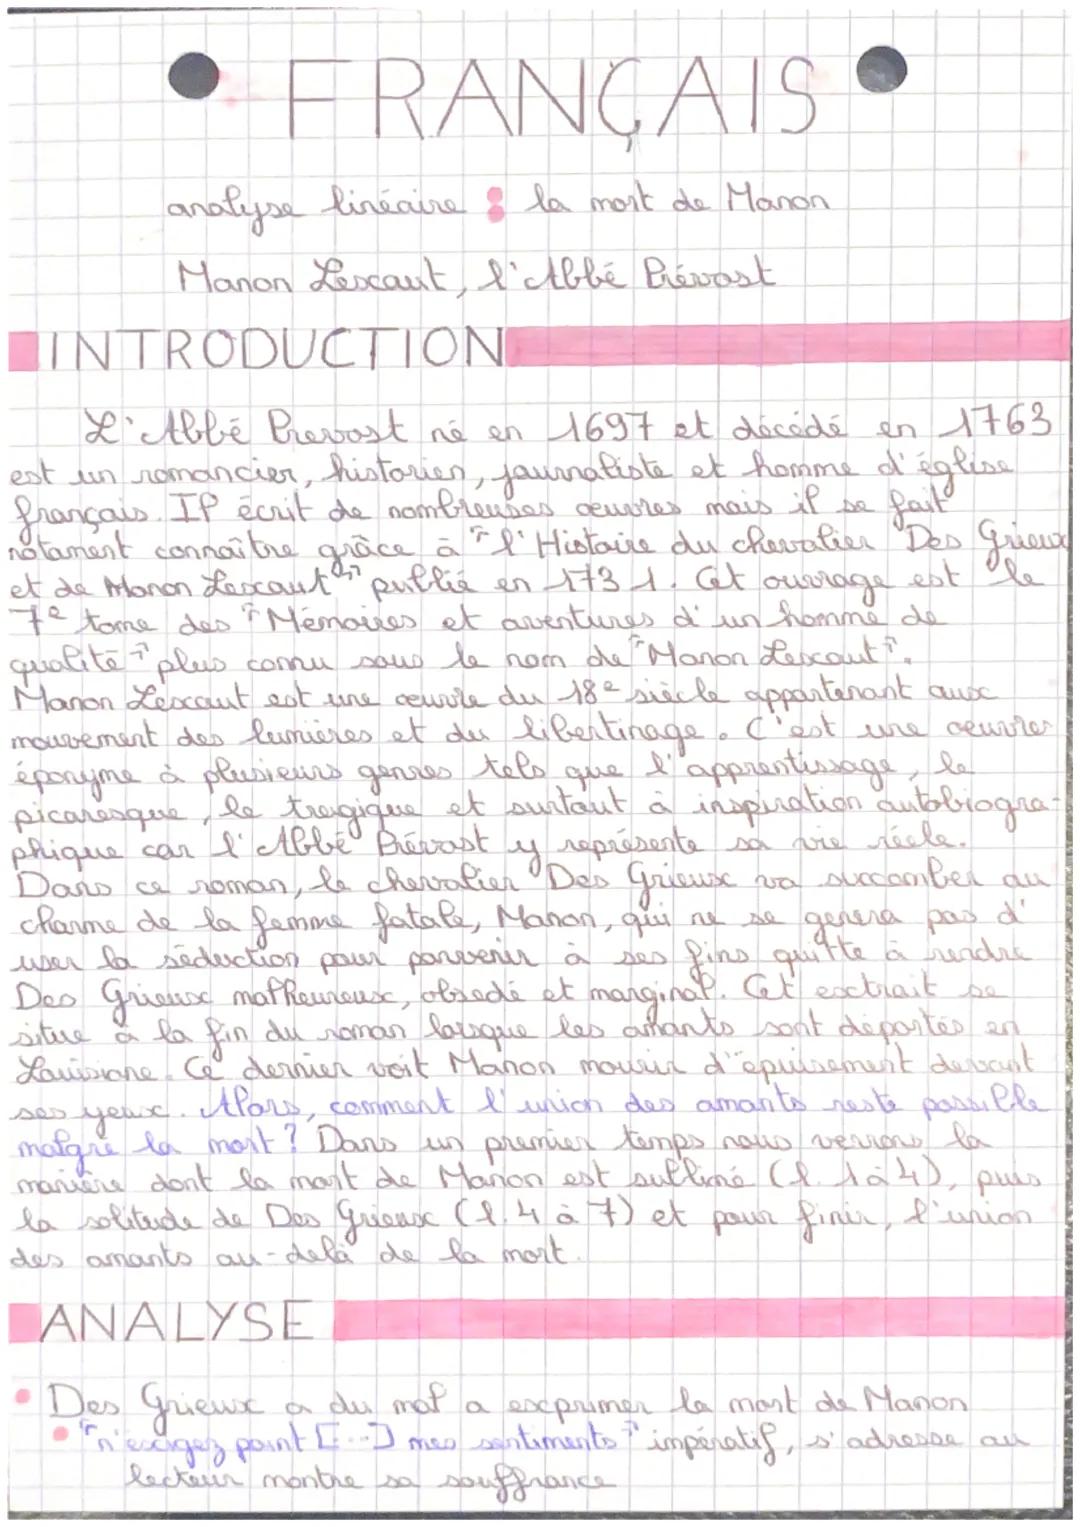 FRANÇAIS
analyse linéaire : la mort de Manon
Manon Lescaut, l'Abbé Prévost
INTRODUCTION
L'Abbé Prevost né en 1697 et décédé en 1763
est un romancier, historien, journaliste et homme d'église
français. Il écrit de nombreuses œuvres mais il se fait
notament connaître grâce à "l'Histoire du chevalier Des Grieux
et de Manon Lescaut" publié en 1731. Cet ouvrage est le
7e tome des "Mémoires et aventures d'un homme de
qualité" plus connu sous le nom de "Manon Lescaut".
Manon Lescaut est une œuvre du 18e siècle appartenant aux
mouvement des lumières et du libertinage. C'est une œuvres
éponyme à plusieurs genres tels que l'apprentissage, le
picaresque, le tragique et surtout à inspiration autobiogra-
phique car l'Abbé Prévost y représente sa vie réele.
Dans ce roman, le chevalier Des Grieux va succomber au
charme de la femme fatale, Manon, qui ne se genera pas d'
user la séduction pour parvenir à ses fins quitte à rendre
Des Grieux malheureux, obsedé et marginal. Cet extrait se
situe à la fin du roman lorsque les amants sont déportés en
Louisiane. Ce dernier voit Manon mourir d'épuisement devant
ses yeux. Alors, comment l'union des amants reste possible
malgré la mort ? Dans un premier temps nous verrons la
manière dont la mort de Manon est sublimé (l. 1 à 4), puis
la solitude de Des Grieux (l. 4 à 7) et pour finir, l'union
des amants au-delà de la mort.
ANALYSE
• Des Grieux a du mal a exprimer la mort de Manon
• "n'exigez point [...] mes sentiments" impératif, s'adresse au
lecteur montre sa souffrance